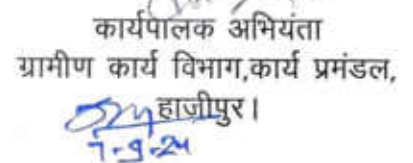 कार्यपालक अभियंता
ग्रामीण कार्य विभाग,कार्य प्रमंडल,
हाजीपुर।
7-9-24